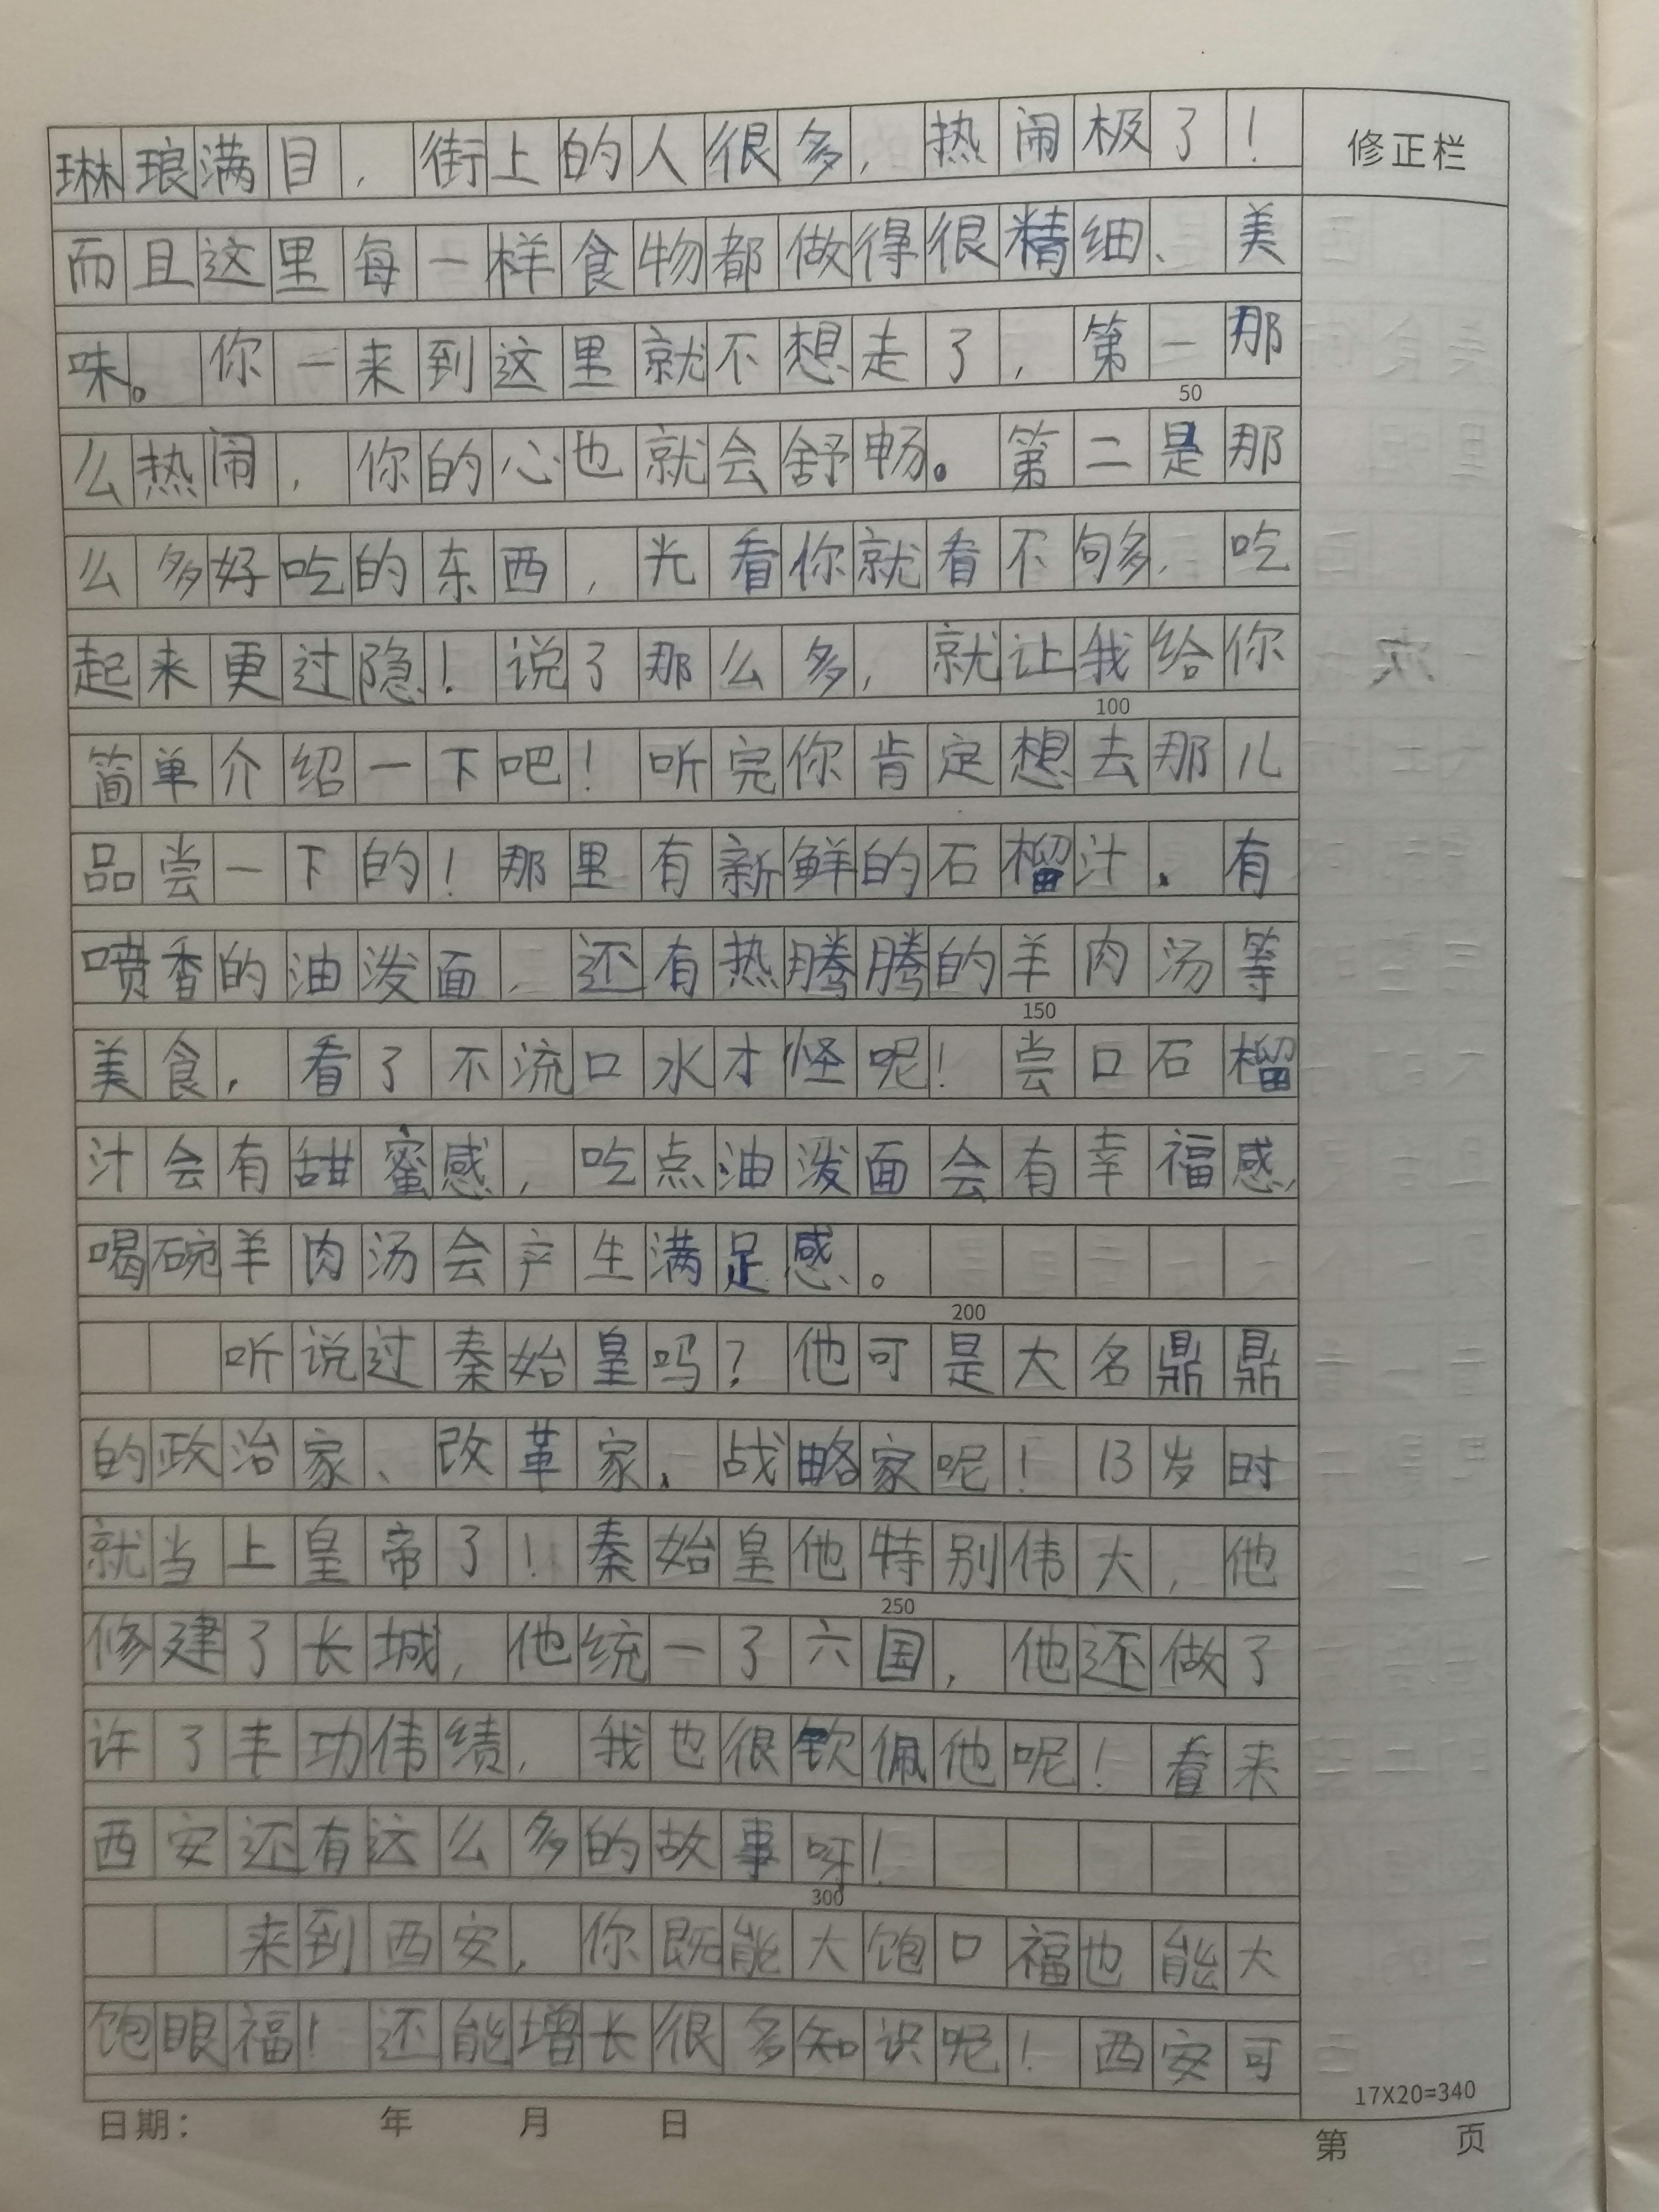 琳琅满目，街上的人很多，热闹极了！
修正栏
而且这里每一样食物都做得很精细、美
味。你一来到这里就不想走了，第一那
50
么热闹，你的心也就会舒畅。第二是那
么多好吃的东西，光看你就看不够，吃
起来更过隐！说了那么多，就让我给你
100
简单介绍一下吧！听完你肯定想去那儿
品尝一下的！那里有新鲜的石榴汁、有
喷香的油泼面，还有热腾腾的羊肉汤等
150
美食，看了不流口水才怪呢！尝口石榴
汁会有甜蜜感，吃点油泼面会有幸福感，
喝碗羊肉汤会产生满足感。
200
听说过秦始皇吗？他可是大名鼎鼎
的政治家、改革家、战略家呢！13岁时
就当上皇帝了！秦始皇他特别伟大，他
250
修建了长城，他统一了六国，他还做了
许了丰功伟绩，我也很钦佩他呢！看来
西安还有这么多的故事呀！
300
来到西安，你既能大饱口福也能大
饱眼福！还能增长很多知识呢！西安可
17X20=340
日期： 年 月 日
第 页